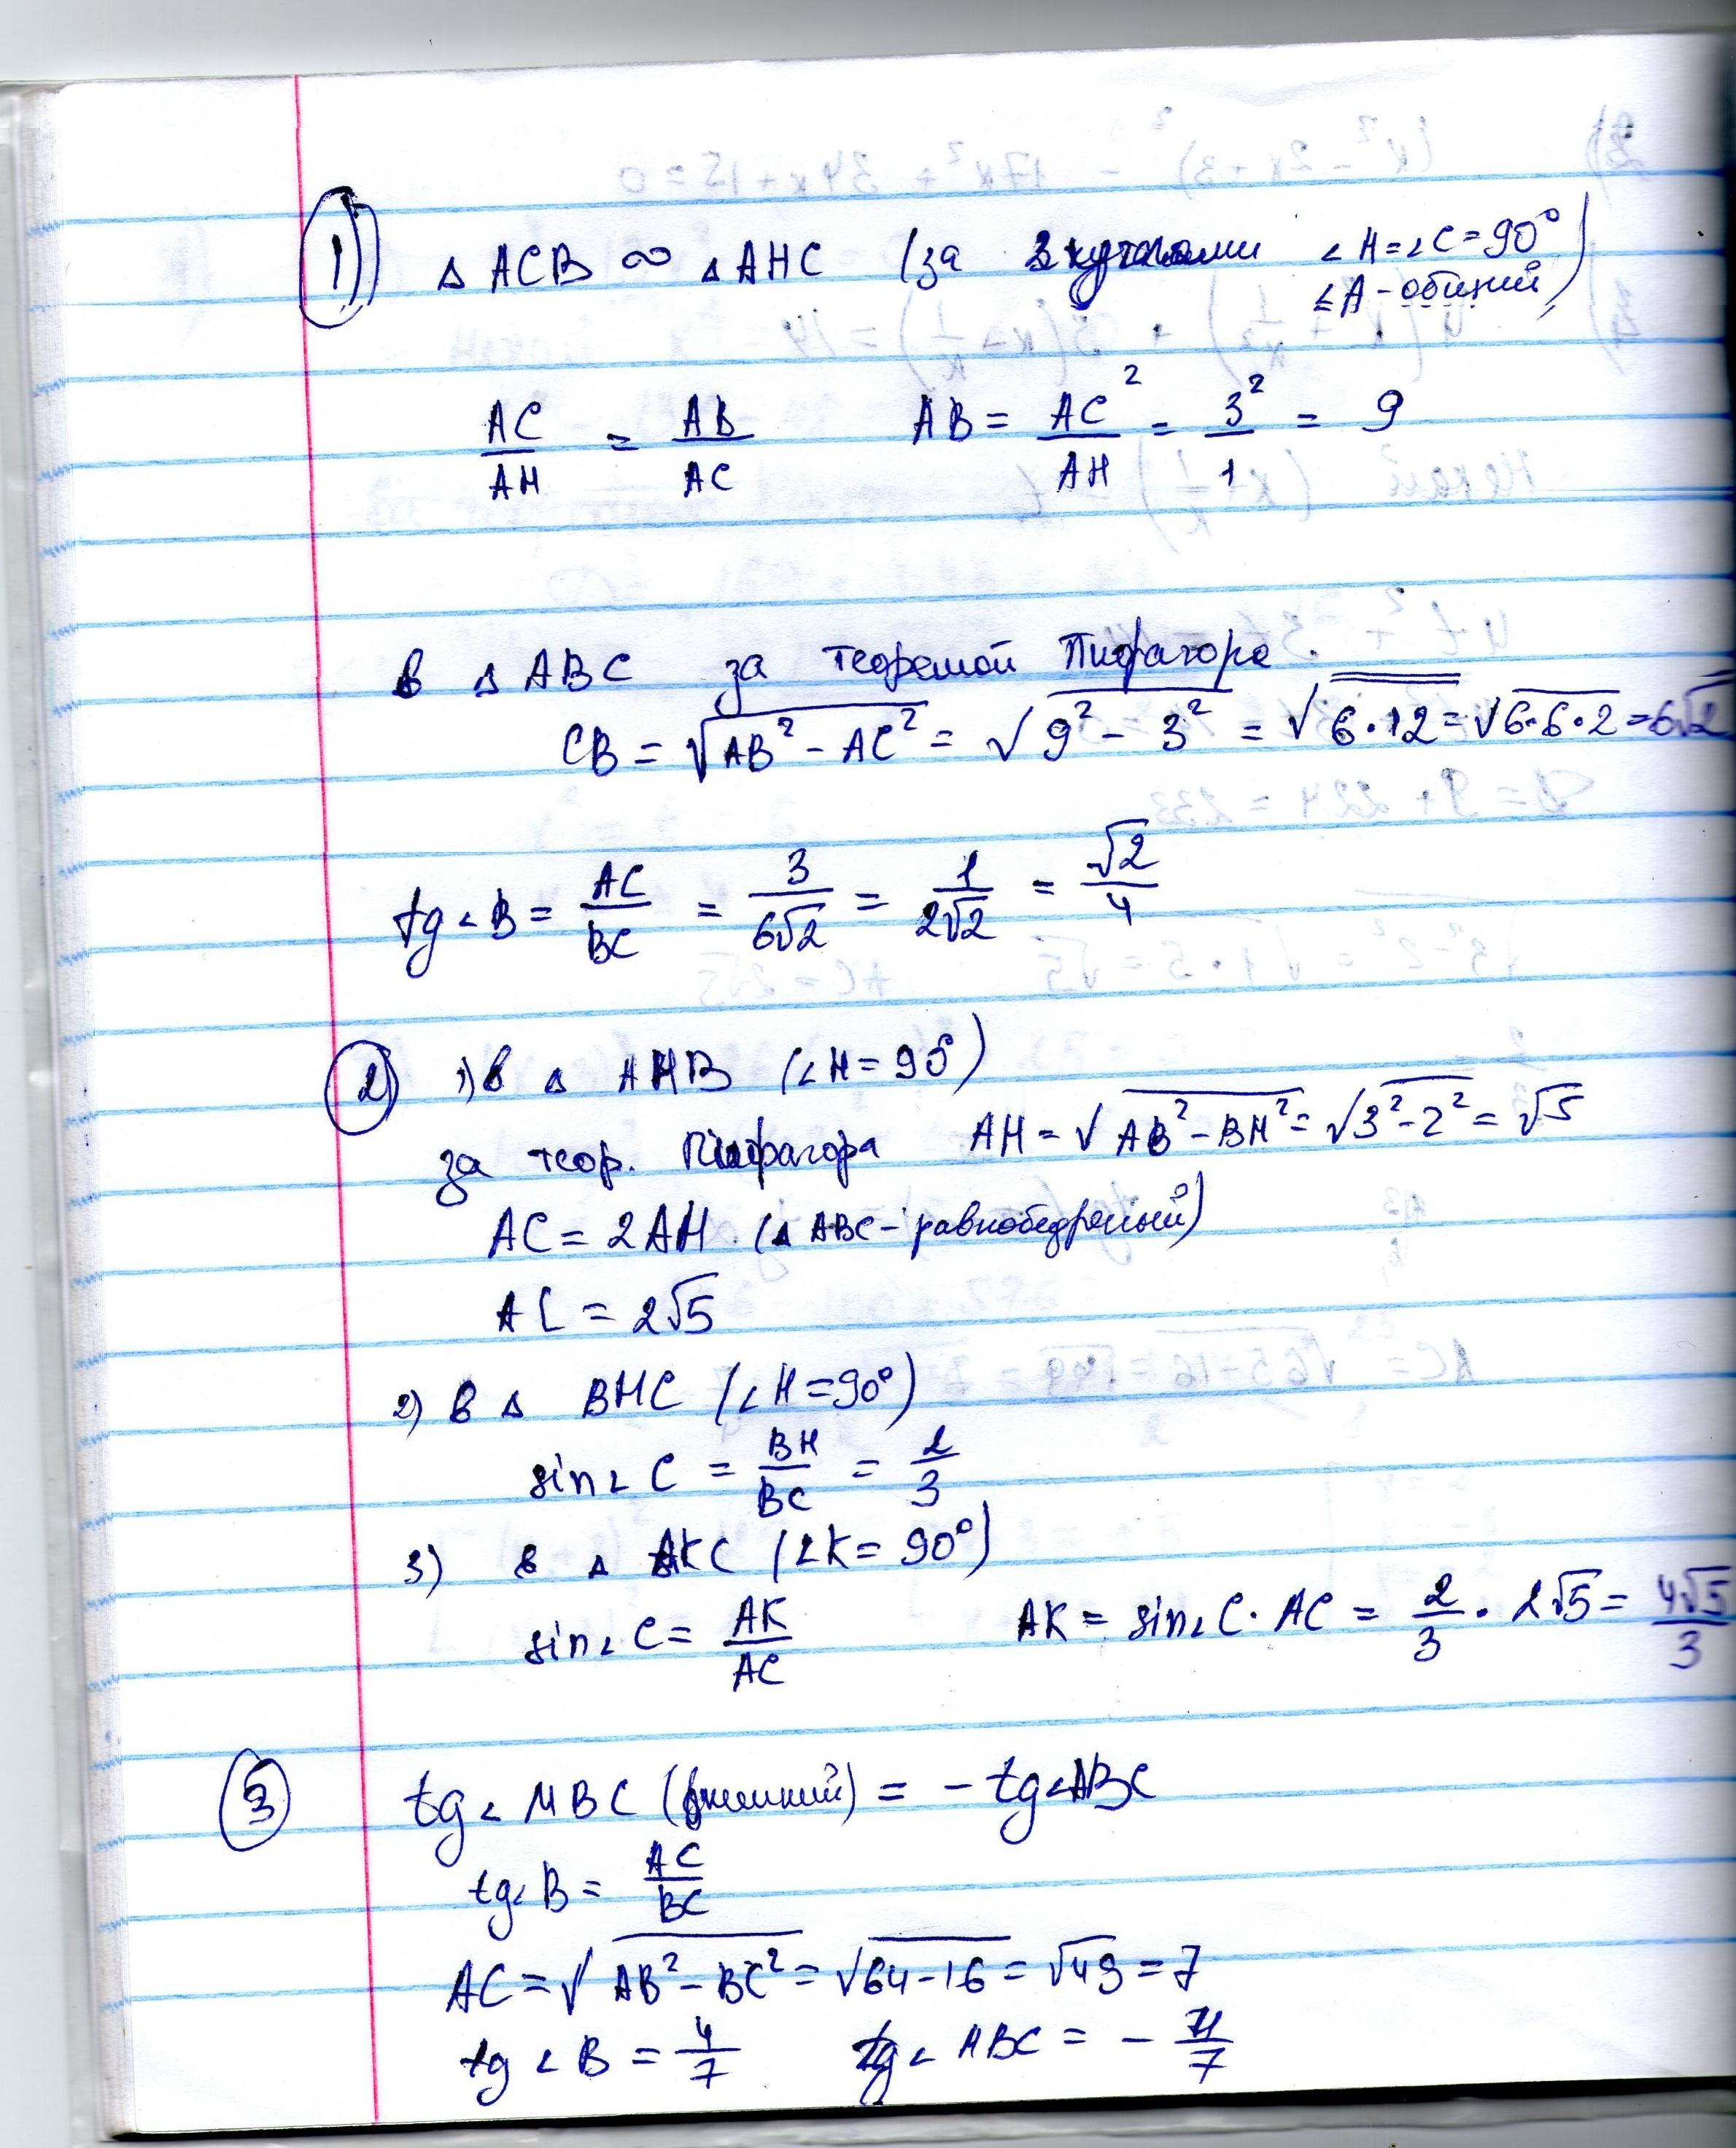 1) Δ ACB ∞ Δ AHC (за 3 кутами ∠H=∠C=90°
∠A-общий)
AC/AH = AB/AC AB = AC²/AH = 3²/1 = 9
в Δ ABC за теоремой Пифагора.
CB = √(AB² - AC²) = √(9² - 3²) = √(6·12) = √(6·6·2) = 6√2
tg∠B = AC/BC = 3/(6√2) = 1/(2√2) = √2/4
2) 1) в Δ AHB (∠H = 90°)
за теор. Пифагора AH = √(AB² - BH²) = √(3² - 2²) = √5
AC = 2AH (Δ ABC - равнобедреный)
AC = 2√5
2) в Δ BHC (∠H = 90°)
sin∠C = BH/BC = 2/3
3) в Δ AKC (∠K = 90°)
sin∠C = AK/AC AK = sin∠C · AC = 2/3 · 2√5 = 4√5/3
3 tg∠MBC (внешний) = - tg∠ABC
tg∠B = AC/BC
AC = √(AB² - BC²) = √(64-16) = √49 = 7
tg∠B = 4/7 tg∠ABC = - 4/7